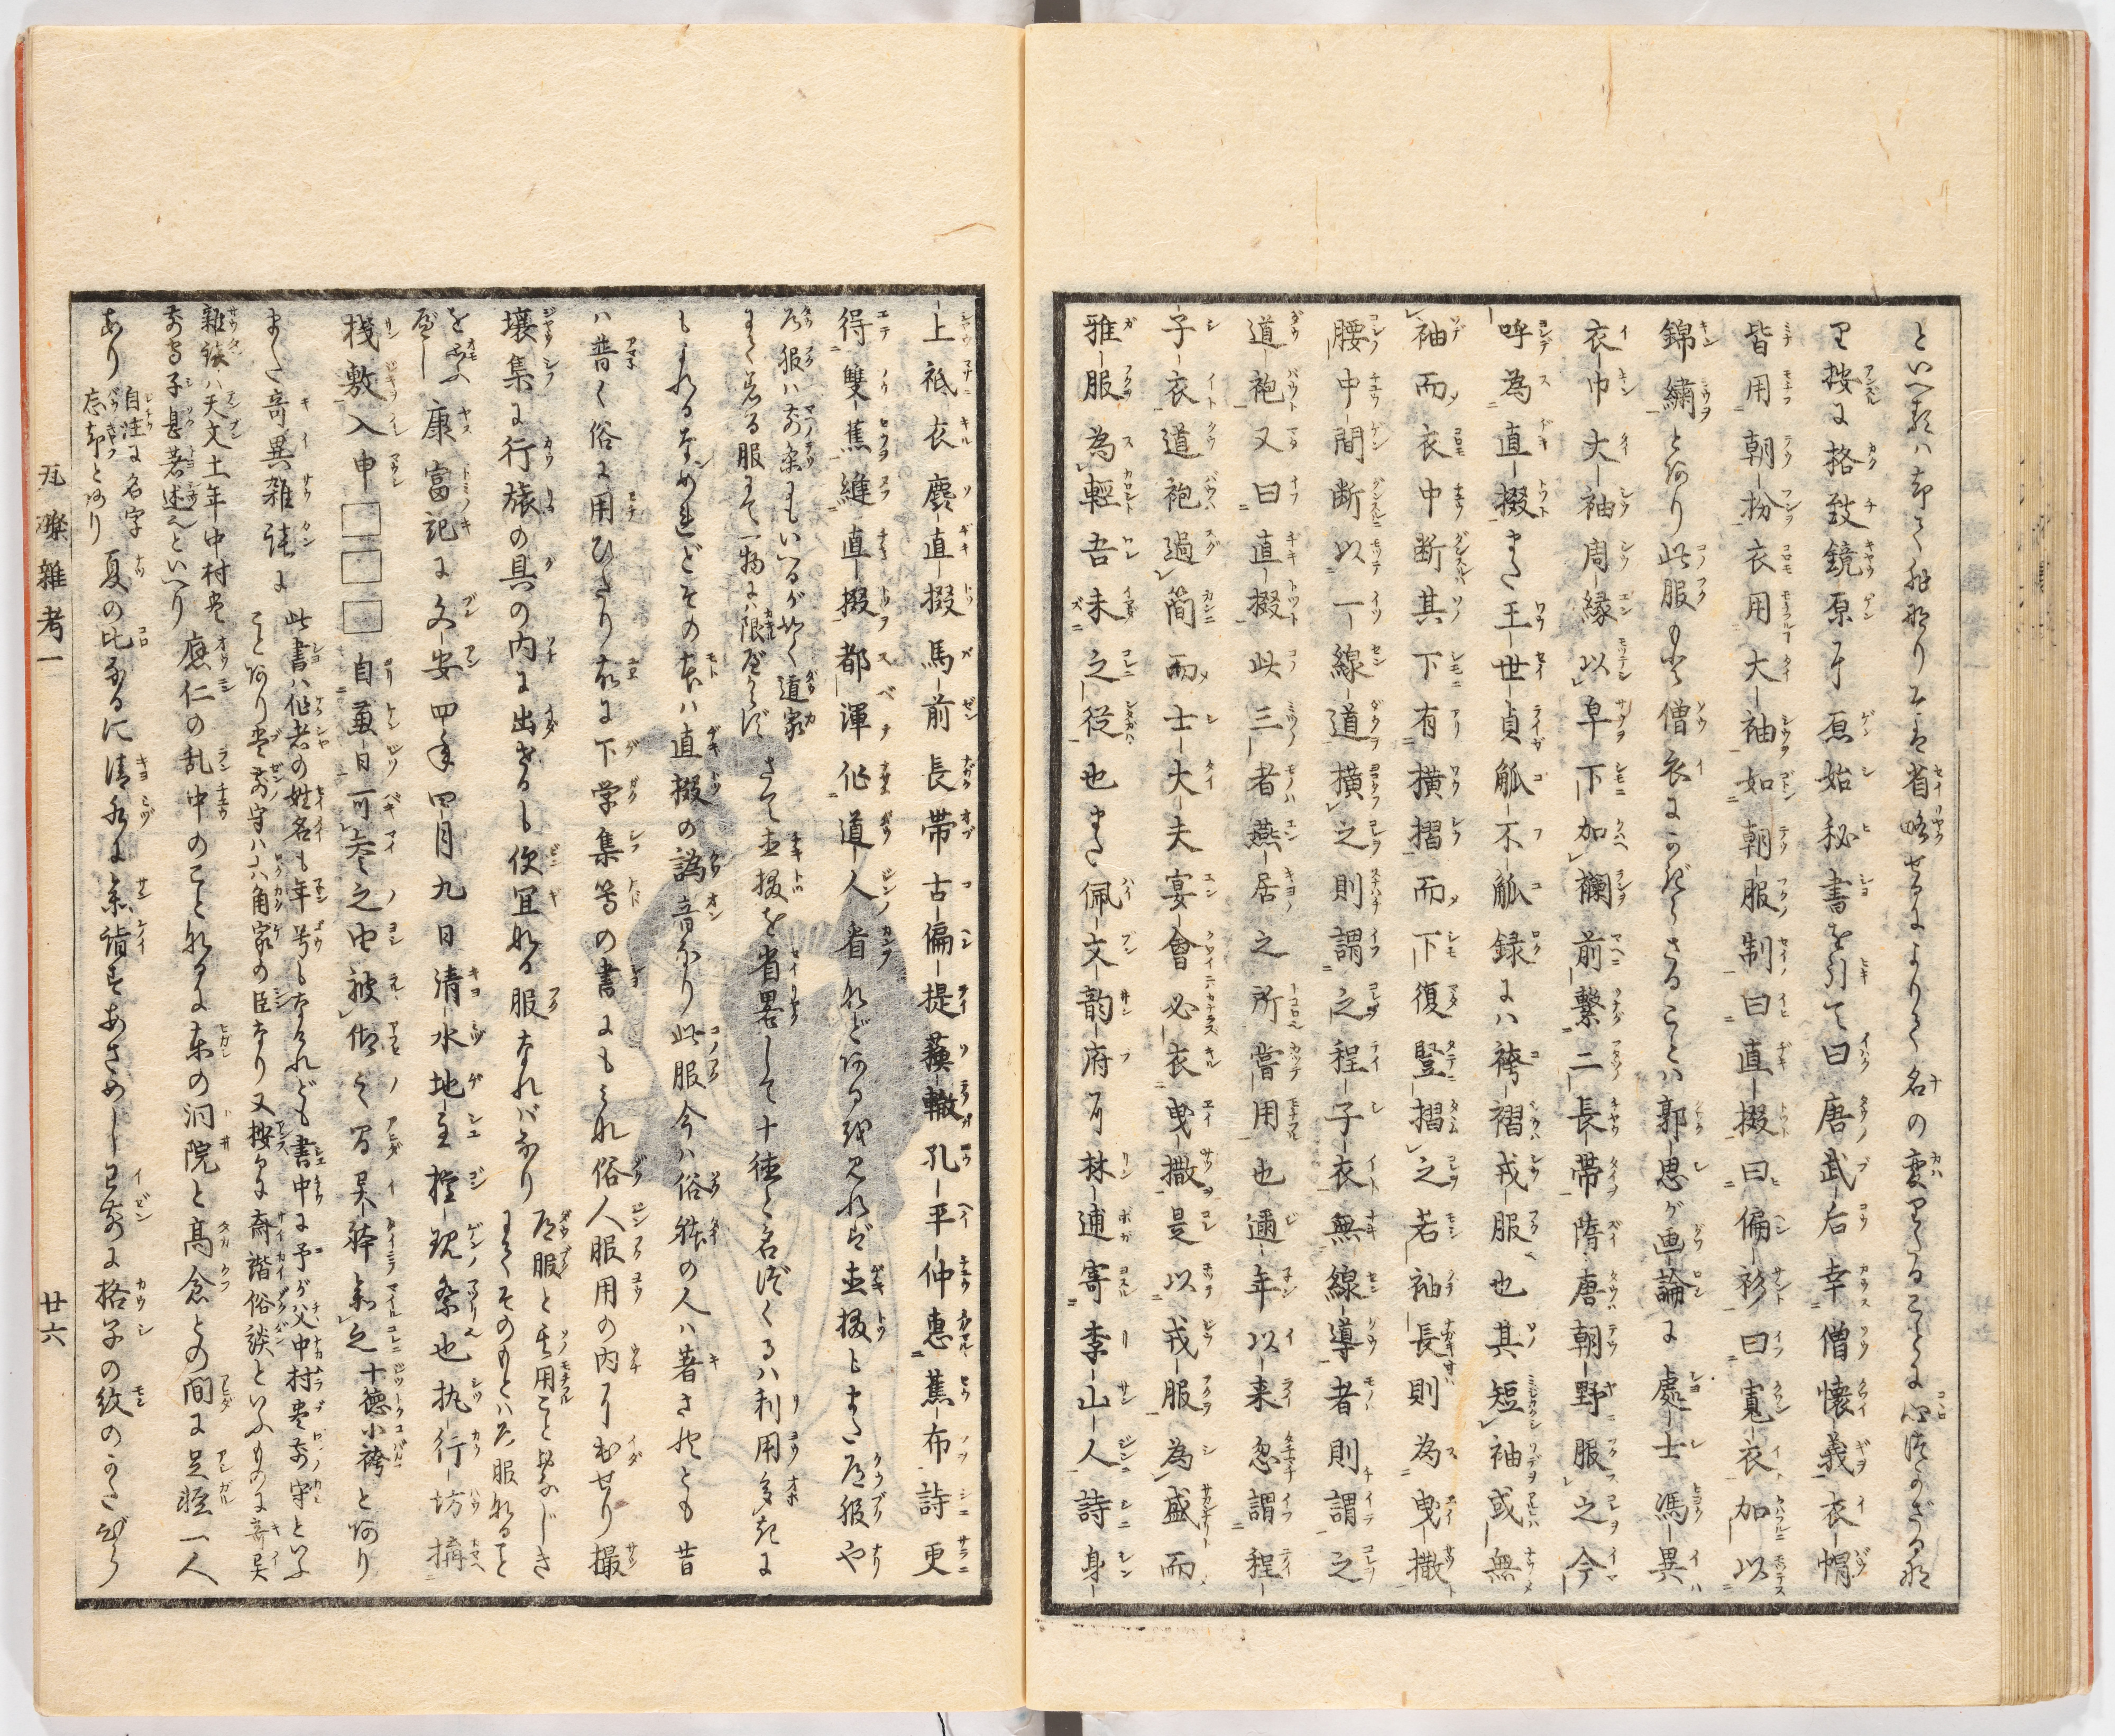 といへるハ却て非なりそは省略せるによりて名の変りたることに心つかざるな
り按に格致鏡原に原始秘書を引て曰唐武后幸僧懐義衣帽
皆用朝扮衣用大袖如朝服制曰直掇曰偏衫曰寛衣加以
錦繍とあり此服もと僧衣にかぎらざることハ郭思が画論に處士馮異
衣巾大袖周縁以皁下加襴前繋二長帯隋唐朝野服之今
呼為直掇また王世貞觚不觚録にハ袴褶戎服也其短袖或無
袖而衣中断其下有横摺而下復豎摺之若袖長則為曳撒
腰中間断以一線道横之則謂之程子衣無線導者則謂之
道袍又曰直掇此三者燕居之所嘗用也邇年以来忽謂程
子衣道袍過簡而士大夫宴會必衣曳撒是以戎服為盛而
雅服為輕吾未之從也また佩文韵府に林逋寄李山人詩身
上祗衣麤直掇馬前長帯古偏提蘓轍孔平仲惠蕉布詩更
得雙蕉縫直掇都渾作道人看などあるを見れば直掇ともまた道服や
道服ハ前条にもいへるが如く道家
にて着る服にて一物にハ限べからず
さて直掇を省畧して十徳と名づくるハ利用多きに
もよれるなめれどその本ハ直掇の譌音なり此服今ハ俗体の人ハ著されども昔
ハ普く俗に用ひたり故に下学集等の書にもみな俗人服用の内に出せり撮
壤集に行旅の具の内に出せるも便宜なる服なればなり
道服と其用ことおなじき
にてそのもとハ大服なること
をおもふべし
康富記に文安四年四月九日清水地主権現祭也執行坊構
棧敷入申□□□自兼日可参之由被傾之間呉躰参之十徳小袴とあり
また奇異雑談に
此書ハ作者の姓名も年号もなけれども書中に予が父中村豊前守といふ
ことあり豊前守ハ六角家の臣なり又按るに斎諧俗談といふものに奇異
雜談ハ天文土年中村豊
前守子甚著述之といへり
應仁の乱中のことなるに東の洞院と高倉との間に足軽一人
あり
自注に名字
忘却とあり
夏の比なるに清水に参詣すあさめしㇵ已前に格子の紋のかたびら
瓦礫雜考一
廿六